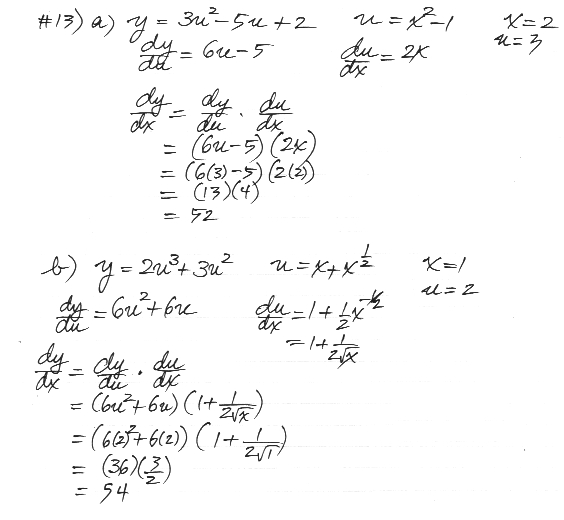 #13) a) y = 3u² - 5u + 2 u = x² - 1 x = 2
u = 3
dy/du = 6u - 5 du/dx = 2x
dy/dx = dy/du · du/dx
= (6u - 5)(2x)
= (6(3) - 5)(2(2))
= (13)(4)
= 52
b) y = 2u³ + 3u² u = x + x^(1/2) x = 1
u = 2
dy/du = 6u² + 6u du/dx = 1 + 1/2 x^(-1/2)
= 1 + 1/(2√x)
dy/dx = dy/du · du/dx
= (6u² + 6u)(1 + 1/(2√x))
= (6(2)² + 6(2))(1 + 1/(2√1))
= (36)(3/2)
= 54